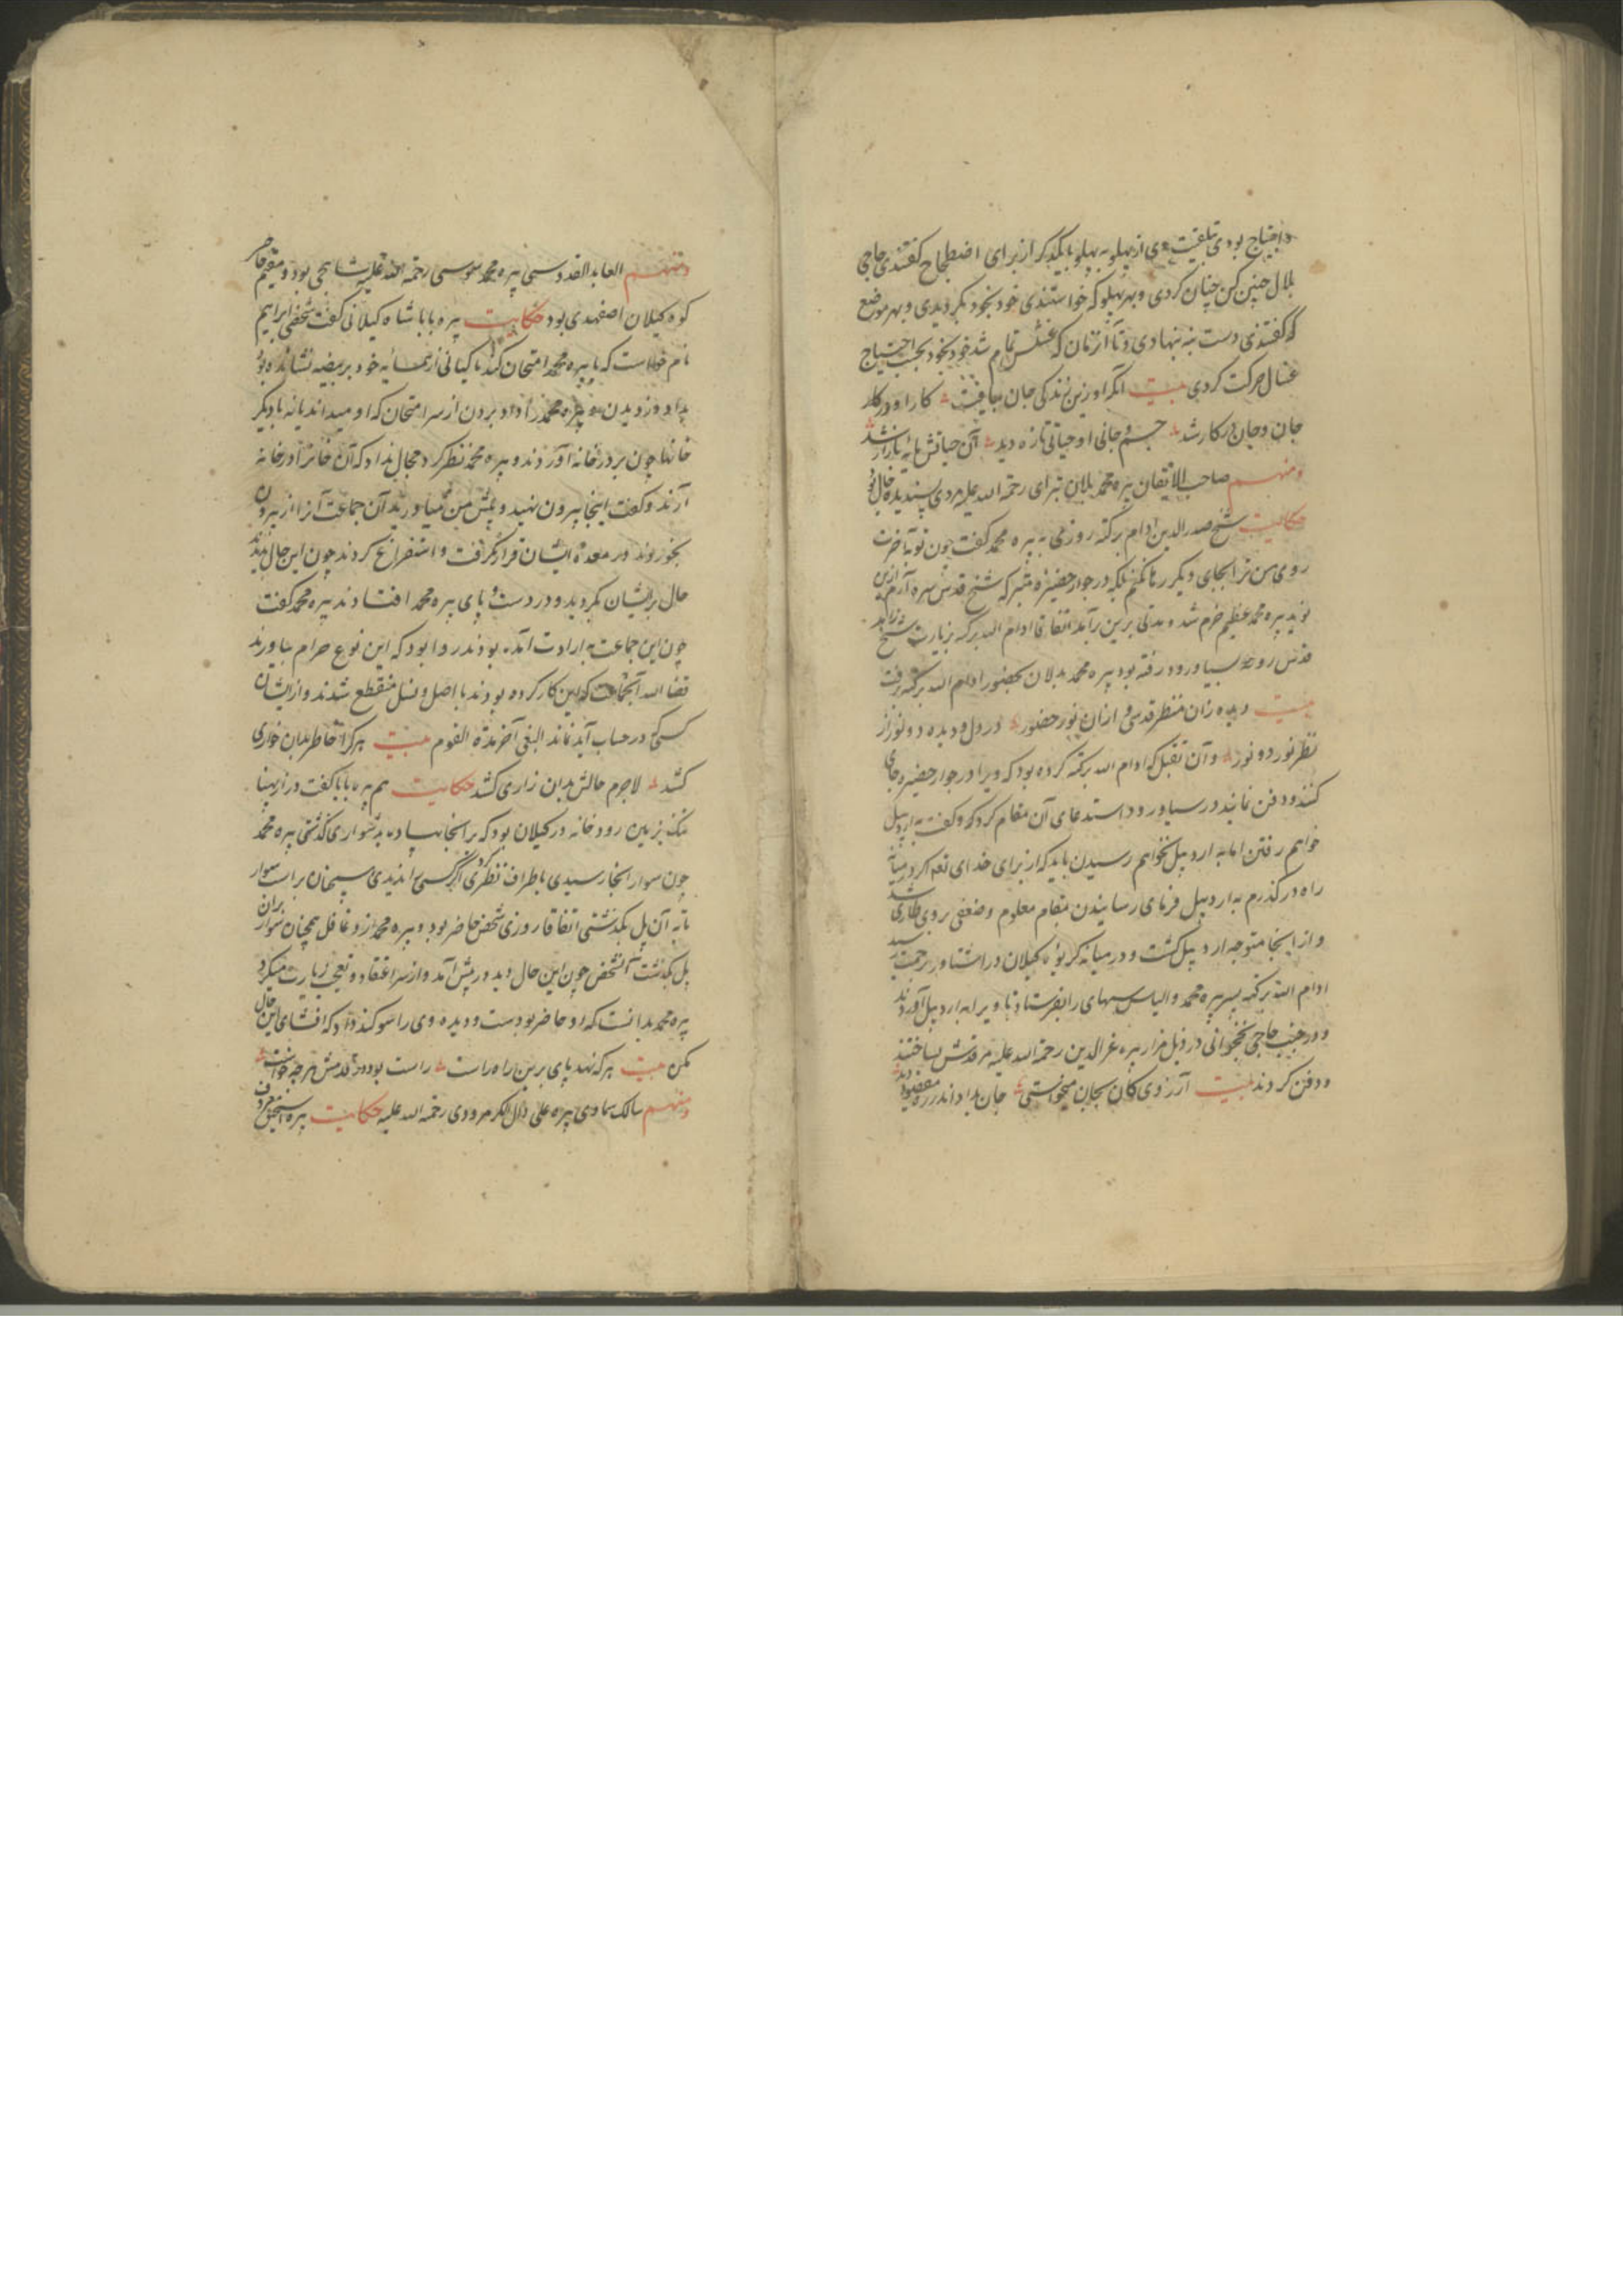 و احتیاج بودی تلقیت وی از پهلو به پهلو با یکدیگر از برای اضطجاع گفتندی حاجی
بلال چنین کن چنان کردی و بهر پهلو که خواستندی خود بخود بگردیدی و بهر موضع
که گفتندی دست بنه بنهادی و تا آن زمان که غسلش تمام شد خود بخود بحسب احتیاج
غسال حرکت کردی بیت آنکه او زین زندگی جان بیافت کار او در کار
جان و جان در کار شد جسم و جانی او حیاتی تازه دید آن حیاتش مایه بازار شد
ومنهم صاحب الاتقان پیره محمد بلان تبرای رحمة الله علیه مردی پسندیده حال بود
حکایت شیخ صدرالدین ادام برکته روزی به پیره محمد گفت چون تو به آخرت
روی من ترا بجای دیگر رها نکنم بلکه در جوار حضیره متبرکه شیخ قدس سره آرم ازین
نوید پیره محمد عظیم خرم شد و مدتی برین برآمد اتفاقا ادام الله برکته بزیارت شیخ زاهد
قدس روحه بسیاورود رفته بود پیره محمد بدلان بحضور ادام الله برکته برفت
بیت دیده زان منظر قدسی و ازان نور حضور در دل و دیده دو نور از
نظر نور دو نور و آن تقبل که ادام الله برکته کرده بود که ویرا در جوار حضیره جای
کنند و دفن نمایند در سیاورود استدعای آن مقام کرد که و گفت به اردبیل
خواهم رفتن اما به اردبیل نخواهم رسیدن باید که از برای خدای تعم اگر در میانه
راه درگذرم به اردبیل فرمای رسانیدن بمقام معلوم و ضعفی بر وی طاری شد
و از اینجا متوجه اردبیل گشت و در میانه گریوه گیلان در راستاور برحمت رسید
ادام الله برکته پسر پیره محمد و الیاس سپهای را بفرستاد تا ویرا به اردبیل آوردند
و در جنب حاجی نخجوانی در ذیل مزار پیره عزالدین رحمة الله علیه مرقدش بساختند
و دفن کردند بیت آرزوی کان بجان میخواستی جان بداد اندر ره مقصود دید
ومنهم العابد القدوسی پیره محمد موسی رحمة الله علیه شابجی بود و مقیم خاص
کوه گیلان اصفهبدی بود حکایت پیره بابا شاه گیلانی گفت شخصی ابراهیم
نام خواست که با پیره محمد امتحان کند ماکیانی از همسایه خود بر بیضه نشانده بود
بداد دزدیدن و پیره محمد را داد بردن از سر امتحان که او میداند یا نه با دیگر
خانها چون بر در خانه آوردند و پیره محمد نظر کرد مجال نداد که آن خانر ادر خانه
آرند و گفت اینجا بیرون نهید و پیش من میاورید آن جماعت آنرا از بیرون
بخوردند در معده ایشان قرار نگرفت و استفراغ کردند چون این حال بدیدند
حال بر ایشان بگردید و در دست و پای پیره محمد افتادند پیره محمد گفت
چون این جماعت به ارادت آمده بودند روا بود که این نوع حرام بیاورند
قضا الله آنجماعت که این کار کرده بودند با اصل و نسل منقطع شدند و از ایشان
کسی در حساب آید نماند البغی آخر مدة القوم بیت هرکرا خاطر بدان خواری
کشد لاجرم حالش بدان زاری کشد حکایت هم پیره بابا گفت در از پهنا
تنک بر بین رودخانه در گیلان بود که بر آنجا پیاده بدشواری گذشتی پیره محمد
چون سوار آنجا رسیدی باطراف نظر کردی اگر کسی را ندیدی همچنان بر اسب سوار
تا به آن پل بگذشتی اتفاقا روزی شخصی حاضر بود و پیره محمد ازو غافل همچنان سوار بران
پل بگذشت آنشخص چون این حال دید در پیش آمد و از سر اعتقاد و تعجب زیارت میکرد
پیره محمد بدانست که او حاضر بودست و دیده وی را سوگند داد که افشای این حال
مکن بیت هرکه نهد پای برین راه راست راست بود در قدمش هرچه خواست
ومنهم سالک سماوی پیره علی دلل الکرمرودی رحمة الله علیه حکایت پیره اسحق معروف